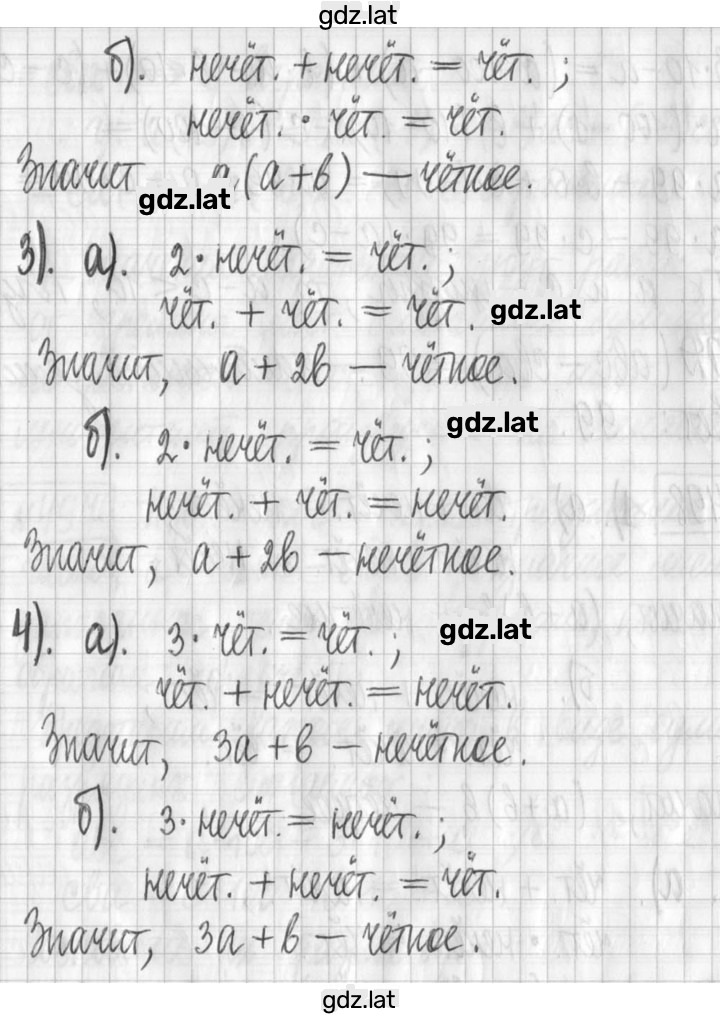 gdz.lat
б). нечёт. + нечёт. = чёт. ;
нечёт. · чёт. = чёт.
Значит (а+в) — чётное.
gdz.lat
3). а). 2 · нечёт. = чёт. ;
чёт. + чёт. = чёт. gdz.lat
Значит, а + 2в — чётное.
gdz.lat
б). 2 · нечёт. = чёт. ;
нечёт. + чёт. = нечёт.
Значит, а + 2в — нечётное.
4). а). 3 · чёт. = чёт. ; gdz.lat
чёт. + нечёт. = нечёт.
Значит, 3а + в — нечётное.
б). 3 · нечёт. = нечёт. ;
нечёт. + нечёт. = чёт.
Значит, 3а + в — чётное.
gdz.lat